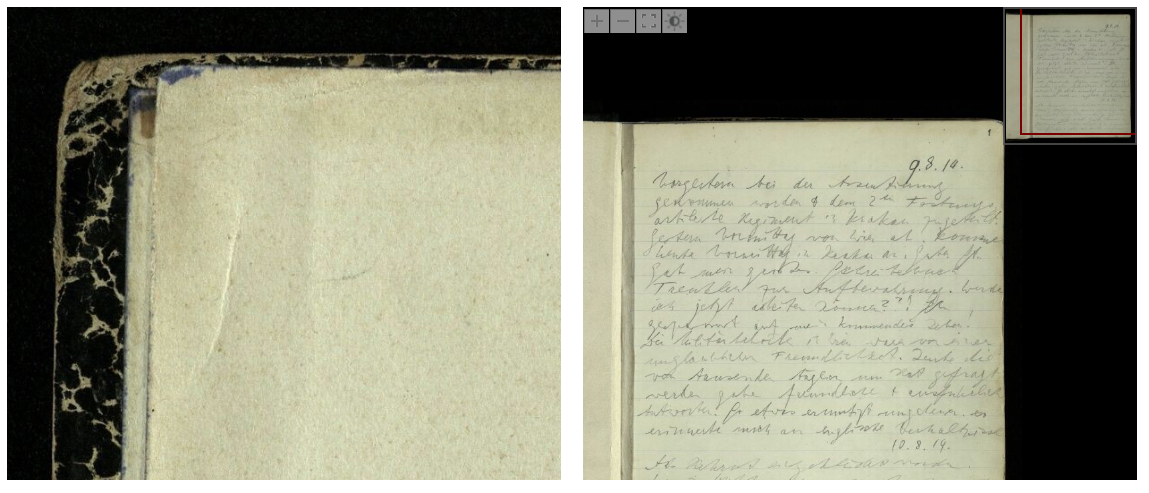 1
9.8.14.
Vorgestern bei der Assentierung
genommen worden & dem 2ten Festungs
artillerie Regiment in Krakau zugeteilt.
Gestern Vormittag von Wien ab. Komme
heute Vormittag in Krakau an. Guter
gab mein großes Schreibbuch
Trenkler zur Aufbewahrung. Werde
ich jetzt arbeiten können??! Bin
gespannt auf mein kommendes Leben!
Die Militärbehörde in Wien waren von einer
unglaublichen Freundlichkeit. Leute die
von Tausenden täglich um Rat gefragt
werden gaben freundliche & ausführliche
Antworten. So etwas ermutigt ungeheuer. es
erinnerte mich an englische Verhältnisse
10.8.14.
Als Rekrut eingekleidet worden.